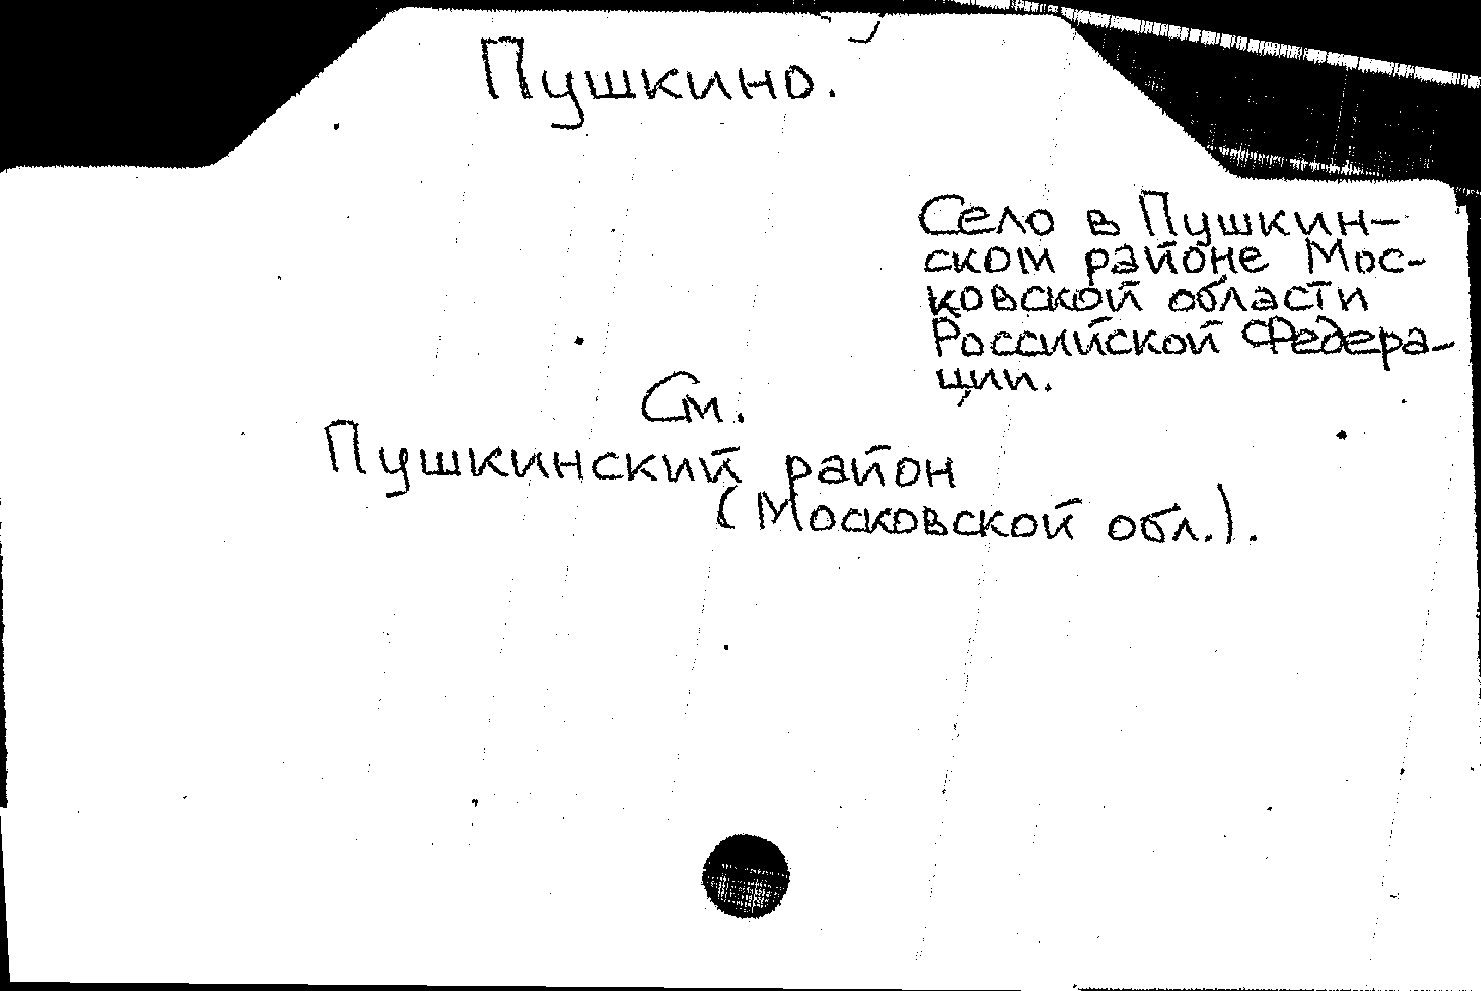 Пушкино.
Село в Пушкин-
ском районе Мос-
ковской области
Российской Федера-
ции.
См.
Пушкинский район
(Московской обл.).